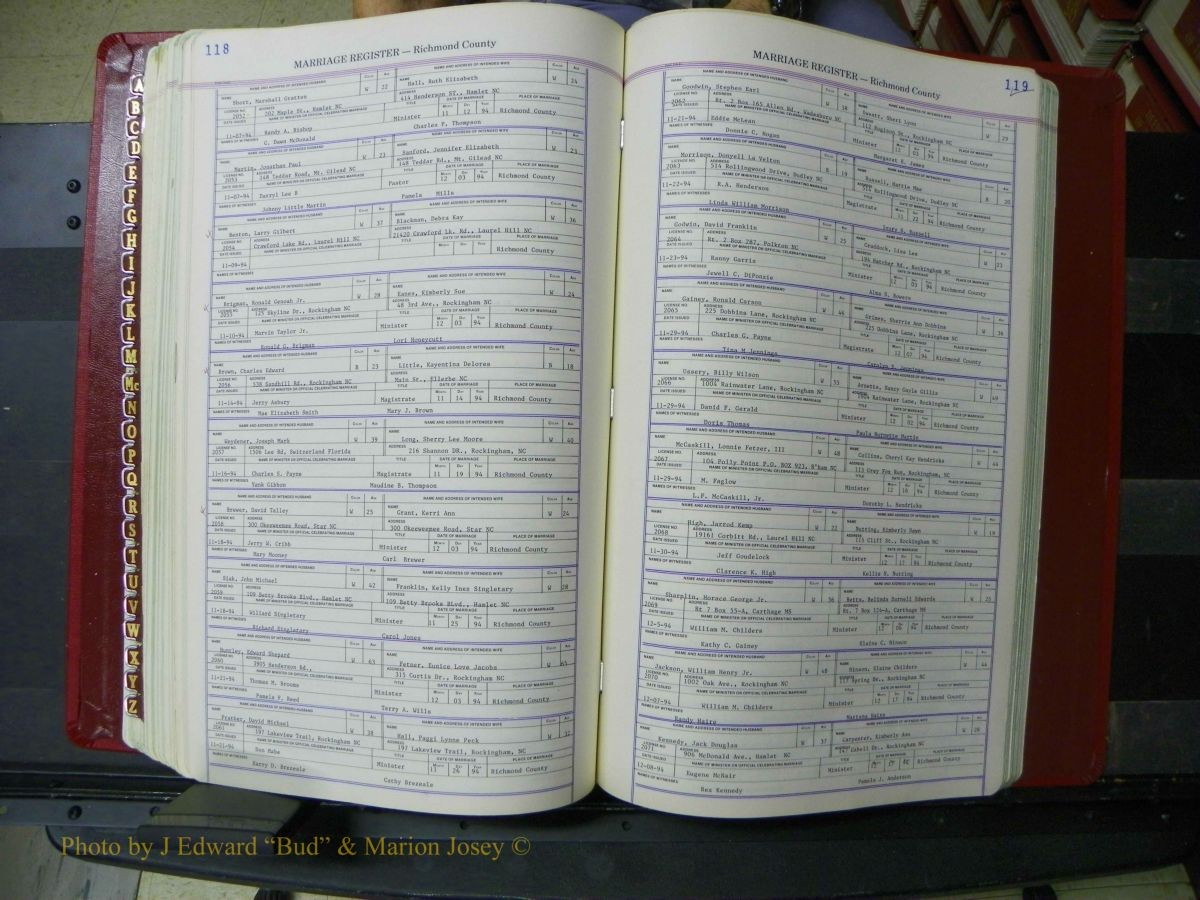 118
MARRIAGE REGISTER — Richmond County
NAME AND ADDRESS OF INTENDED HUSBAND COLOR AGE NAME AND ADDRESS OF INTENDED WIFE COLOR AGE
Short, Marshall Gratten W 22 Hall, Ruth Elizabeth W 24
LICENSE NO. 2052 ADDRESS 202 Maple St., Hamlet NC 414 Henderson ST., Hamlet NC
DATE ISSUED NAME OF MINISTER OR OFFICIAL CELEBRATING MARRIAGE TITLE DATE OF MARRIAGE PLACE OF MARRIAGE
11-07-94 Randy A. Bishop Minister 11 12 94 Richmond County
NAMES OF WITNESSES G. Dawn McDonald Charles F. Thompson
Martin, Jonathan Paul W 23 Sanford, Jennifer Elizabeth W 23
2053 148 Teddar Road, Mt. Gilead NC 148 Teddar Rd., Mt. Gilead NC
11-07-94 Darryl Lee B Pastor 12 03 94 Richmond County
Johnny Little Martin Pamela Mills
Benton, Larry Gilbert W 37 Blackman, Debra Kay W 36
2054 Crawford Lake Rd., Laurel Hill NC 21420 Crawford Lk. Rd., Laurel Hill NC
11-09-94 Richmond County
Brigman, Ronald Genoah Jr. W 28 Eanes, Kimberly Sue W 24
2055 125 Skyline Dr., Rockingham NC 48 3rd Ave., Rockingham NC
11-10-94 Marvin Taylor Jr. Minister 12 03 94 Richmond County
Ronald G. Brigman Lori Honeycutt
Brown, Charles Edward B 23 Little, Kayentina Delores B 18
2056 538 Sandhill Rd., Rockingham NC Main St., Ellerbe NC
11-14-94 Jerry Asbury Magistrate 11 14 94 Richmond County
Mae Elizabeth Smith Mary J. Brown
Weydener, Joseph Mark W 39 Long, Sherry Lee Moore W 40
2057 1506 Lee Rd, Switzerland Florida 216 Shannon DR., Rockingham, NC
11-16-94 Charles E. Payne Magistrate 11 19 94 Richmond County
Yank Gibbon Maudine B. Thompson
Brewer, David Talley W 25 Grant, Kerri Ann W 24
2058 300 Okeeweemee Road, Star NC 300 Okeeweemee Road, Star NC
11-18-94 Jerry W. Cribb Minister 12 03 94 Richmond County
Mary Mooney Carl Brewer
Sisk, John Michael W 42 Franklin, Kelly Ines Singletary W 28
2059 109 Betty Brooks Blvd., Hamlet NC 109 Betty Brooks Blvd., Hamlet NC
11-18-94 Williard Singletary Minister 11 25 94 Richmond County
Richard Singletary Carol Jones
Huntley, Edward Shepard W 63 Fetner, Eunice Love Jacobs W 65
2060 1905 Henderson Rd., 315 Curtis Dr., Rockingham NC
11-21-94 Thomas M. Brooks Minister 12 03 94 Richmond County
Pamela F. Reed Terry A. Wills
Prather, David Michael W 38 Hall, Paggi Lynne Peck W 32
2061 197 Lakeview Trail, Rockingham NC 197 Lakeview Trail, Rockingham, NC
11-21-94 Don Mabe Minister 11 26 94 Richmond County
Harry D. Brezeale Cathy Brezeale
119
MARRIAGE REGISTER — Richmond County
Goodwin, Stephen Earl W 38 Sweatt, Sheri Lynn W 29
2062 Rt. 2 Box 165 Allen Rd., Wadesboro NC Rockingham NC
11-21-94 Eddie McLean Minister 12 03 94 Richmond County
Donnie C. Hogan Margaret E. James
Morrison, Donyell La Velton B 19 Russell, Hattie Mae B 20
2063 514 Rollingwood Drive, Dudley NC 514 Rollingwood Drive, Dudley NC
11-22-94 K.A. Henderson Magistrate 11 22 94 Richmond County
Linda William Morrison
Godwin, David Franklin W 25 Craddock, Lisa Lee W 21
2064 Rt. 2 Box 287, Polkton NC 194 Hatcher Rd., Rockingham NC
11-23-94 Ranny Garris Minister 12 03 94 Richmond County
Jewell C. DiPonzie Alma S. Bowers
Gainey, Ronald Carson W 46 Grimes, Sherrie Ann Dobbins W 36
2065 225 Dobbins Lane, Rockingham NC 225 Dobbins Lane, Rockingham NC
11-29-94 Charles G. Payne Magistrate 12 02 94 Richmond County
Tina M Jennings Carolyn S. Jennings
Ussery, Billy Wilson W 53 Arnette, Nancy Gayle Gillis W 49
2066 1004 Rainwater Lane, Rockingham NC 1004 Rainwater Lane, Rockingham NC
11-29-94 David F. Gerald Minister 12 02 94 Richmond County
Doris Thomas Paula Burnette Martin
McCaskill, Lonnie Fetzer, III W 48 Collins, Cheryl Kay Hendricks W 44
2067 104 Polly Point P.O. BOX 923, R'ham NC 113 Gray Fox Run, Rockingham, NC
11-29-94 M. Faglow Minister 12 18 94 Richmond County
L.F. McCaskill, Jr. Dorothy L. Hendricks
High, Jarrod Kemp W 22 Nutting, Kimberly Dawn W 19
2068 19161 Corbitt Rd., Laurel Hill NC 115 Cliff St., Rockingham NC
11-30-94 Jeff Goudelock Minister 12 17 94 Richmond County
Clarence K. High Kellie R. Nutting
Sharplin, Horace George Jr. W 36 Betts, Belinda Darnell Edwards W 25
2069 Rt 7 Box 55-A, Carthage MS Rt. 7 Box 124-A, Carthage MS
12-5-94 William M. Childers Minister 12 06 94 Richmond County
Kathy C. Gainey Elaine C. Hinson
Jackson, William Henry Jr. W 48 Hinson, Elaine Childers W 44
2070 1002 Oak Ave., Rockingham NC 113 Spring Dr., Rockingham NC
12-07-94 William M. Childers Minister 12 17 94 Richmond County
Randy Haire Marissa Haire
Kennedy, Jack Douglas W 37 Carpenter, Kimberly Ann W 28
2071 906 McDonald Ave., Hamlet NC Cabell Dr., Rockingham NC
12-08-94 Eugene McNair Minister Richmond County
Rex Kennedy Pamela J. Anderson
A
B
C
D
E
F
G
H
I
J
K
L
M
Mc
N
O
P
Q
R
S
T
U
V
W
X
Y
Z
Photo by J Edward “Bud” & Marion Josey ©